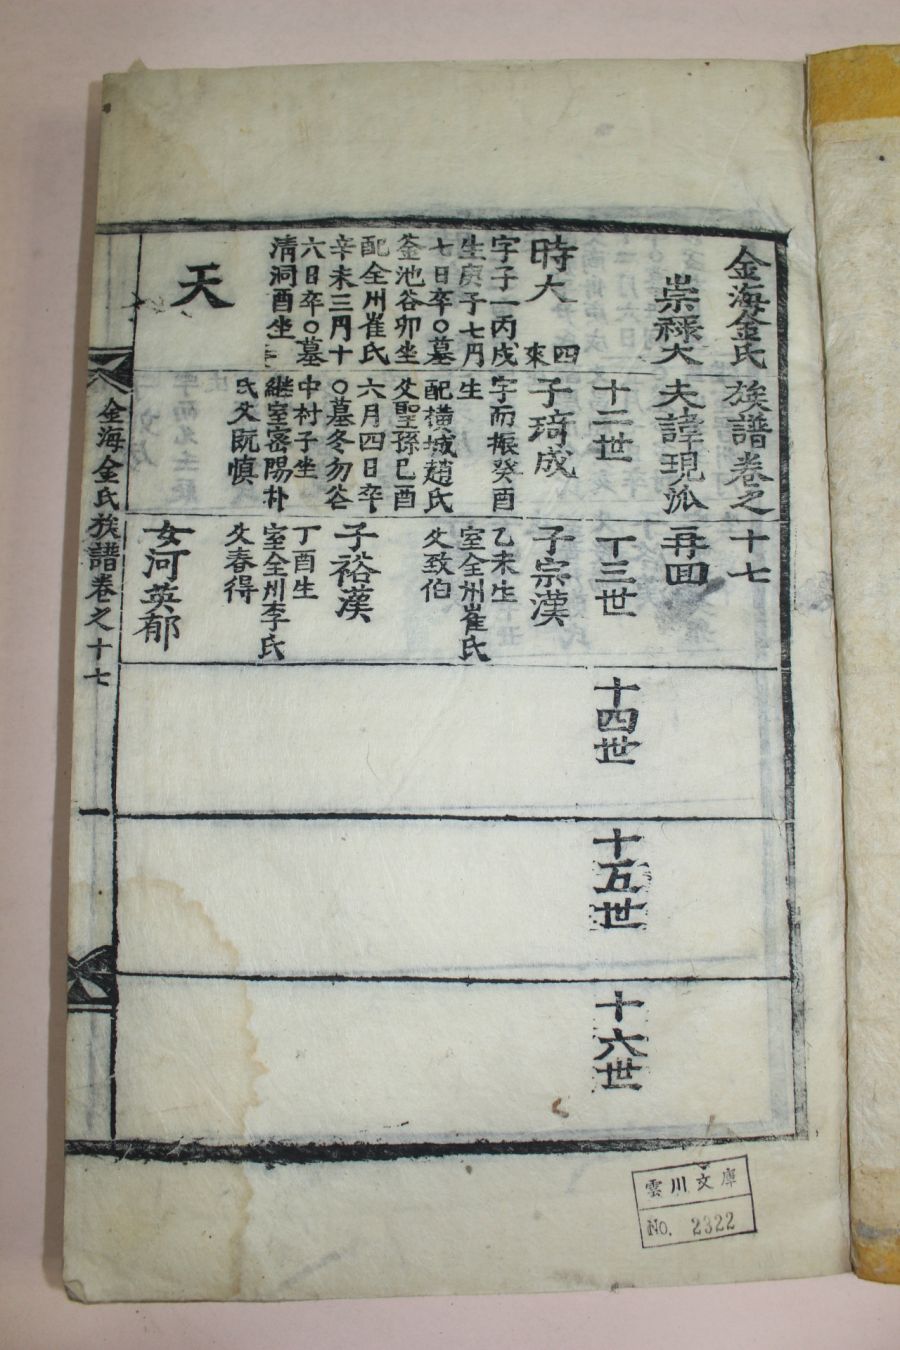 金海金氏族譜卷之十七
崇祿大夫諱現派再回
十二世
十三世
十四世
十五世
十六世
時大
四來
字子一丙戌
生庚子七月
七日卒○墓
釜池谷卯坐
配全州崔氏
辛未三月十
六日卒○墓
清洞酉坐
天
子琦成
字而振癸酉
生
配橫城趙氏
父聖孫己酉
六月四日卒
○墓冬勿谷
中村子坐
継室密陽朴
氏父既慎
子宗漢
乙未生
室全州崔氏
父致伯
子裕漢
丁酉生
室全州李氏
父春得
女河英郁
金海金氏族譜卷之十七
一
雲川文庫
No. 2322